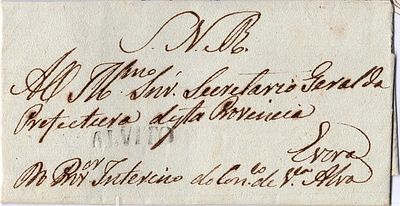 S. N. R.
Ao Illmo Snr. Secretario Geral da
Prefectura desta Provincia
ALVITO
Evora
Do Pror Interino do Conco. de Va. Alva